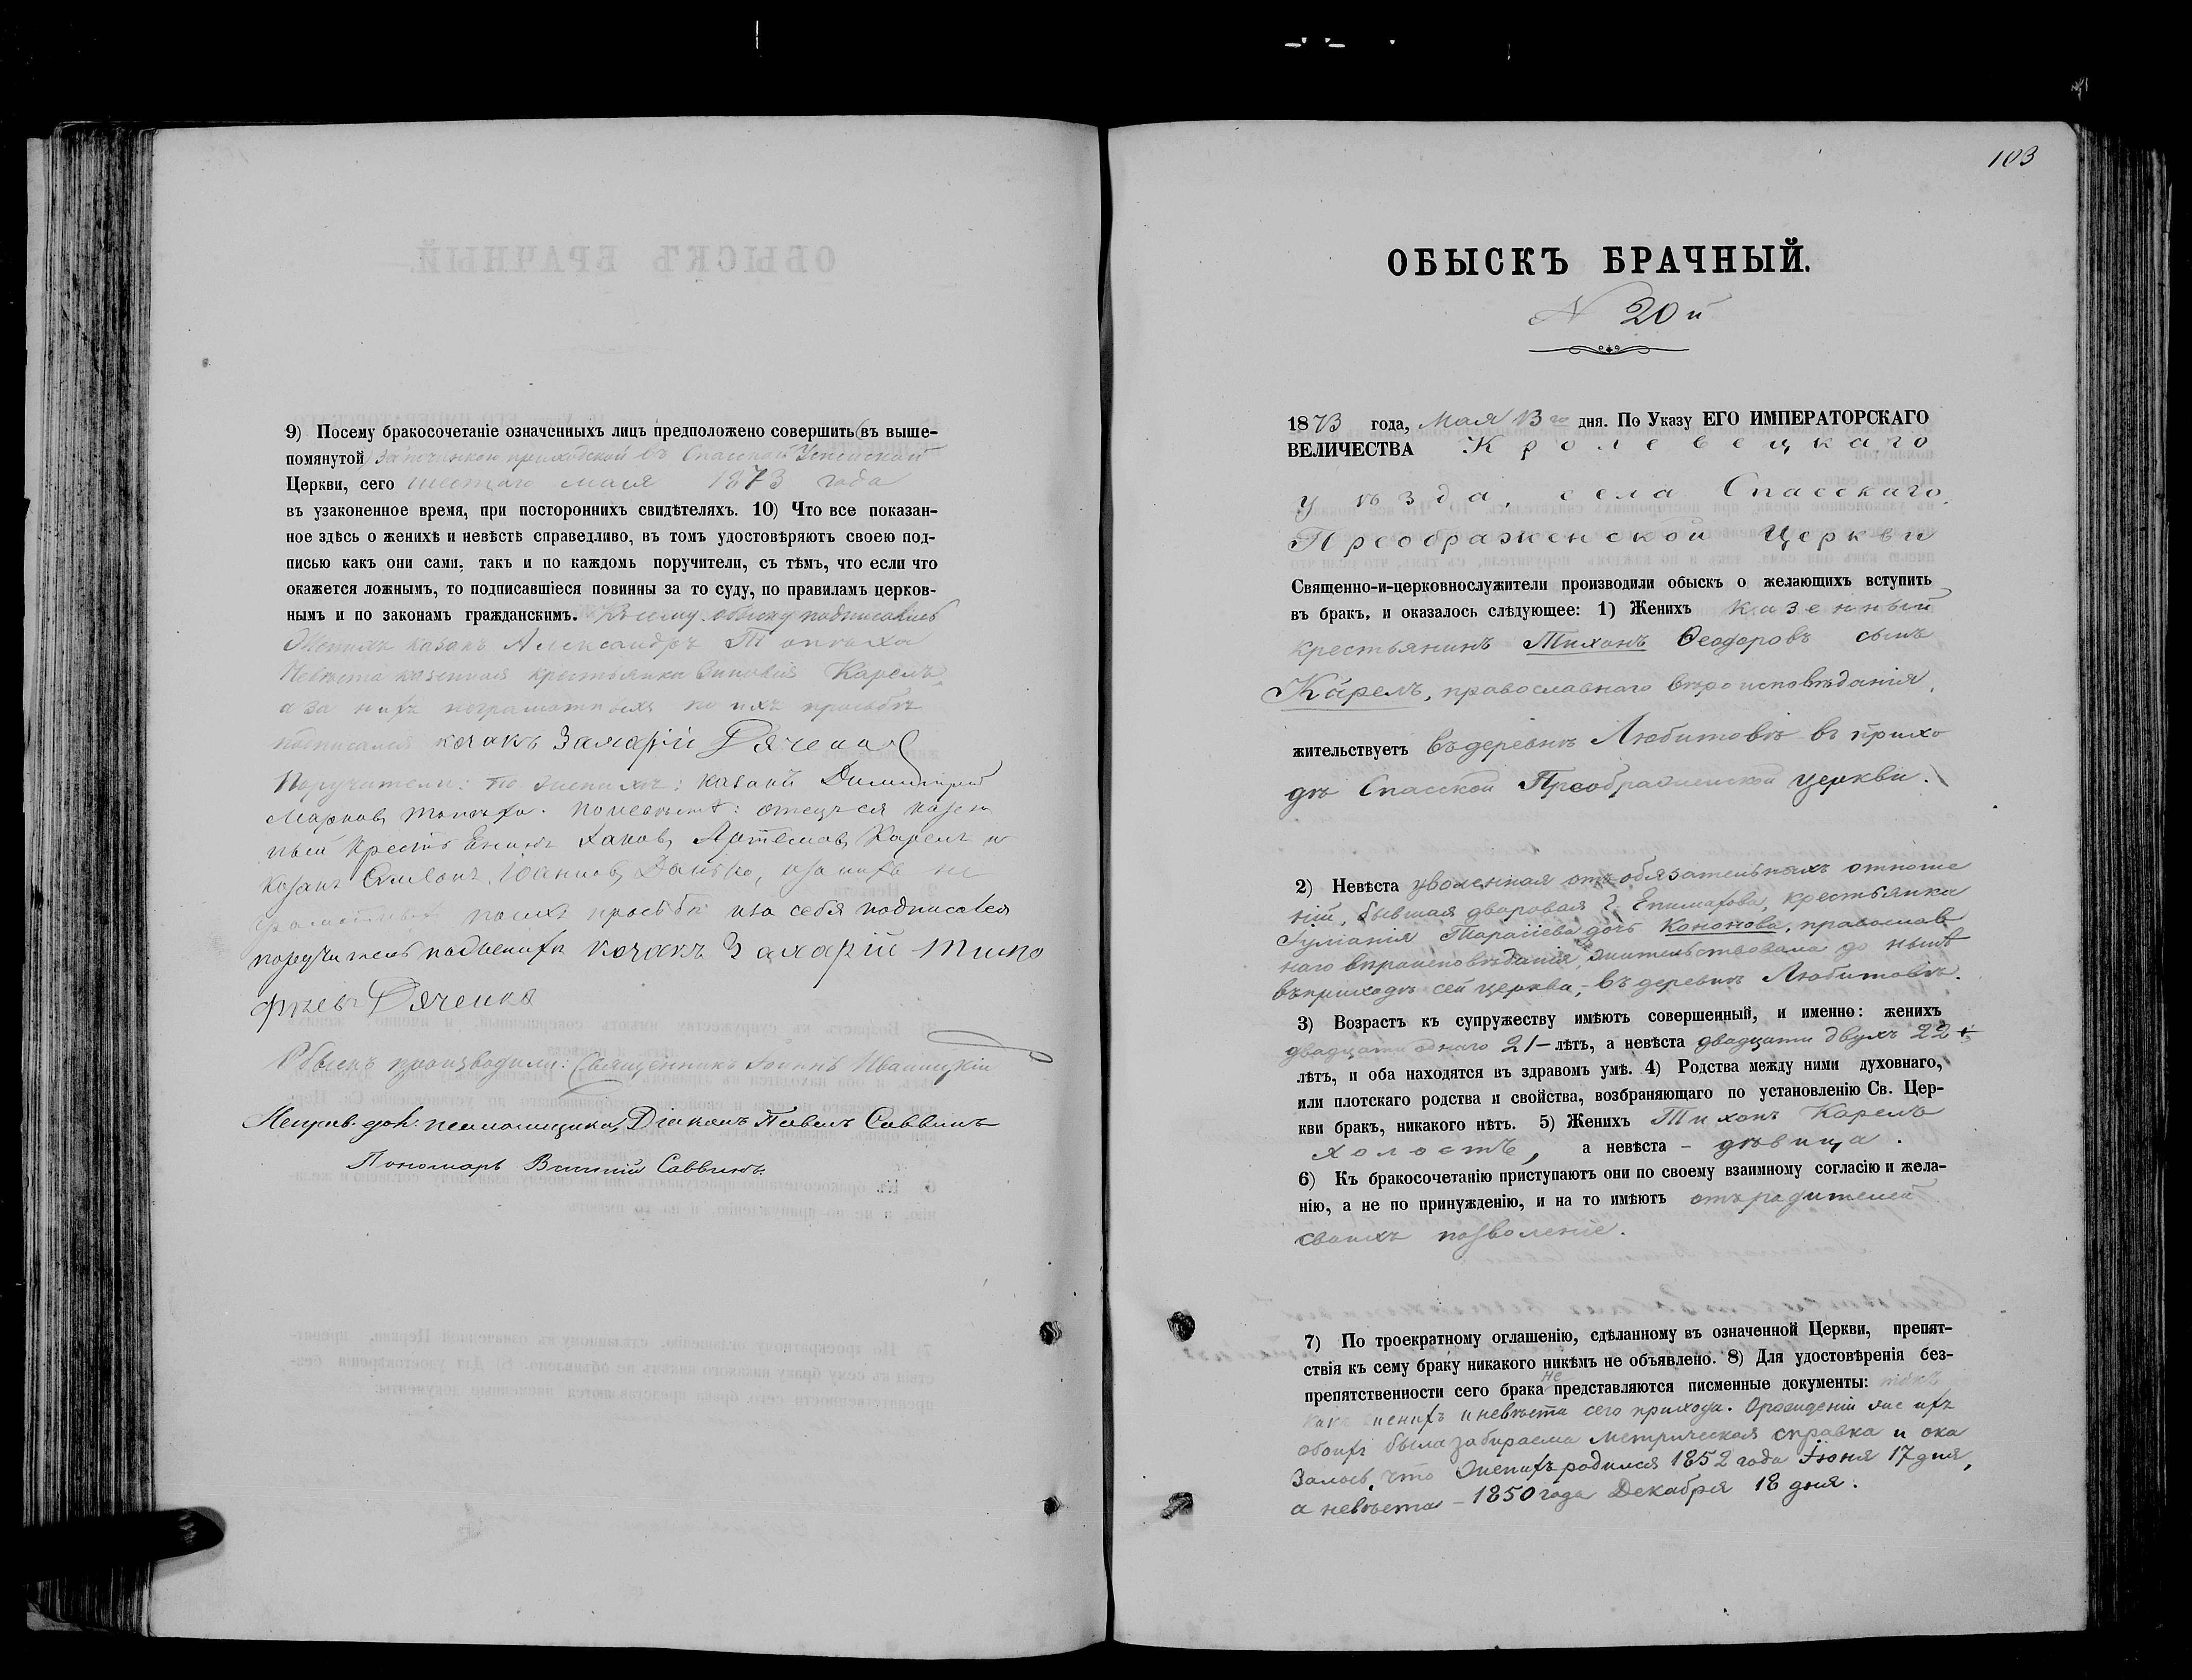 9) Посему бракосочетаніе означенныхъ лицъ предположено совершить (въ выше-
помянутой) за починкою приходской въ Спасской Успенской
Церкви, сего шестаго мая 1873 года
въ узаконенное время, при постороннихъ свидѣтеляхъ. 10) Что все показан-
ное здѣсь о женихѣ и невѣстѣ справедливо, въ томъ удостовѣряютъ своею под-
писью какъ они сами, такъ и по каждомъ поручители, съ тѣмъ, что если что
окажется ложнымъ, то подписавшіеся повинны за то суду, по правиламъ церков-
нымъ и по законамъ гражданскимъ. Къ сему обыску подписались
Женихъ казакъ Александръ Топчъха
Невѣста казенная крестьянка Зиновія Карель,
а за нихъ неграмотныхъ по ихъ просьбѣ
подписался козакъ Захарій Дяченко
Поручители: по женихѣ: казакъ Димитрій
Марковъ Топчъха. по невѣстѣ: отецъ ея казен
ный крест. Іаковъ Артемовъ Карель и
козакъ Симеонъ Іоанновъ, а за нихъ не
грамотныхъ по ихъ просьбѣ и за себя подписался
поручитель по женихѣ козакъ Захарій Тимо
фѣевъ Дяченко
Обыскъ производили: Священникъ Іоаннъ Иваницкій
Исправ. долж. псаломщика, Діаконъ Павелъ Саввинъ
Пономарь Саввинъ.
103
ОБЫСКЪ БРАЧНЫЙ.
N 20й
1873 года, Мая 13го дня. По Указу ЕГО ИМПЕРАТОРСКАГО
ВЕЛИЧЕСТВА Кролевецкаго
уѣзда, села Спасскаго,
Преображенской Церкви
Священно-и-церковнослужители производили обыскъ о желающихъ вступить
въ бракъ, и оказалось слѣдующее: 1) Женихъ казенный
крестьянинъ Тихонъ Ѳеодоровъ сынъ
Карель, православнаго вѣроисповѣданія,
жительствуетъ въ деревнѣ Любитовѣ въ прихо
дѣ Спасской Преображенской церкви.
2) Невѣста уволенная отъ обязательныхъ отноше
ній, бывшая дворовая г. Епимахова, крестьянка
Іуліанія Тарасіева дочь Кононова, православ
наго вѣроисповѣданія, жительствовала до нынѣ
въ приходѣ сей церкви, - въ деревнѣ Любитовѣ.
3) Возрастъ къ супружеству имѣютъ совершенный, и именно: женихъ
двадцати однаго 21 - лѣтъ, а невѣста двадцати двухъ 22 -
лѣтъ, и оба находятся въ здравомъ умѣ. 4) Родства между ними духовнаго,
или плотскаго родства и свойства, возбраняющаго по установленію Св. Цер-
кви бракъ, никакого нѣтъ. 5) Женихъ Тихонъ Карель
холостъ, а невѣста - дѣвица.
6) Къ бракосочетанію приступаютъ они по своему взаимному согласію и жела-
нію, а не по принужденію, и на то имѣютъ отъ родителей
своихъ позволеніе.
7) По троекратному оглашенію, сдѣланному въ означенной Церкви, препят-
ствія къ сему браку никакого никѣмъ не объявлено. 8) Для удостовѣренія без-
препятственности сего брака не представляются писменные документы: такъ
какъ женихъ и невѣста сего прихода. О рожденіи же ихъ
обоихъ была забираема метрическая справка и ока
залось, что женихъ родился 1852 года Іюня 17 дня,
а невѣста - 1850 года Декабря 18 дня.